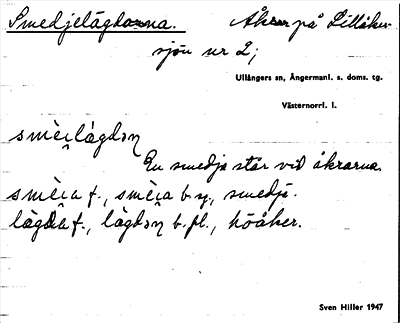 Smedjelägdorna. Åkrar på Lillåker-
sjön nr 2;
Ullångers sn, Ångermanl. s. doms. tg.
Västernorrl. l.
smèi̯lägdɔn
En smedja står vid åkrarna.
smèi̯a f., smèi̯a b. sg., smedja.
lägda f., lägdɔn b. pl., höåker.
Sven Hiller 1947